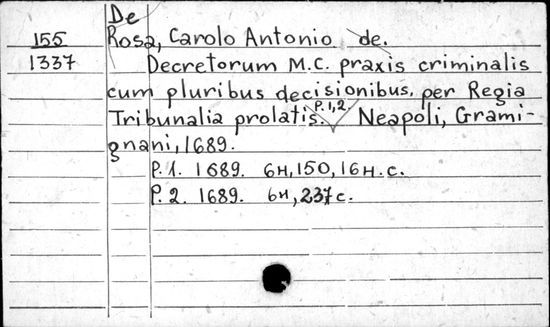 De
155 Rosa, Carolo Antonio de.
1337 Decretorum M.C. praxis criminalis
cum pluribus decisionibus, per Regia
Tribunalia prolatis. P. 1, 2 Neapoli, Grami-
gnani, 1689.
P. 1. 1689. 6н, 150, 16н. с.
P. 2. 1689. 6н, 237 с.